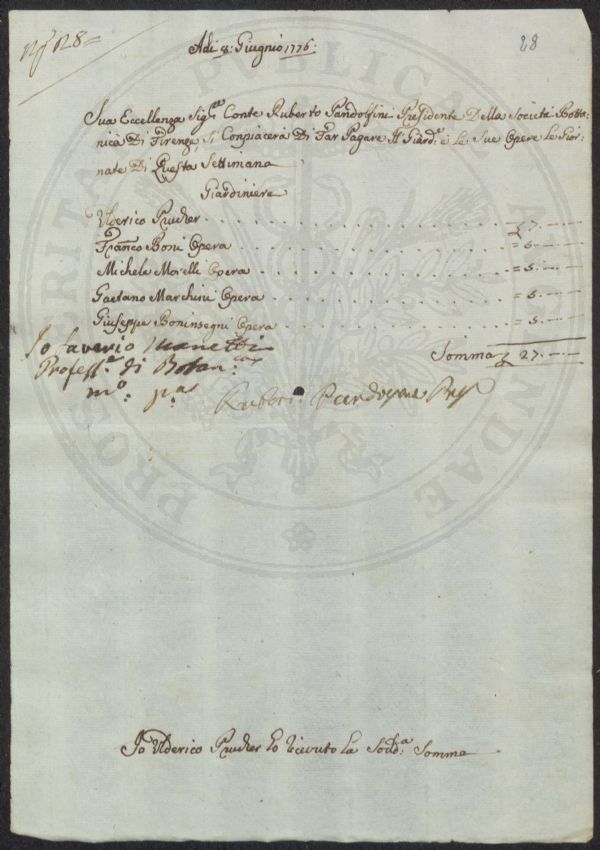 N.º 28=
28
Adi 8: Giugnio 1776:
Sua Eccellenza Sig.re Conte Ruberto Pandolfini Presidente Della Società Botta:
nica Di Firenze, Si Conpiacerà Di Far Pagare Il Giard.e e Le Sue Opere Le Gior:
nate Di Questa Settimana
Giardiniere
Ulderico Prucher . . . . . . . . . . £ 7. --
Franco Boni Opera . . . . . . . . . . = 5. --
Michele Morelli Opera . . . . . . . . . . = 5. --
Gaetano Marchini Opera . . . . . . . . . . = 5. --
Giuseppe Boninsegni Opera . . . . . . . . . . = 5. --
Somma £ 27. --
Io Saverio Manetti
Profess.re di Botan.ca
m.o p.a
Ruberto Pandolfini Pres
Io Ulderico Prucher ho ricevuto La Sod.a Somma
PUBLICAE
PROSPERITATI